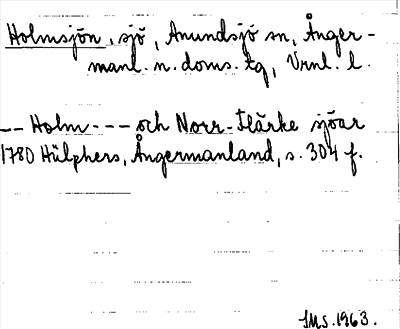 Holmsjön, sjö, Anundsjö sn, Ånger-
manl. n. doms. tg, Vrnl. l.
-- Holm --- och Norr-Flärke sjöar
1780 Hülphers, Ångermanland, s. 304 f.
IMS. 1963.